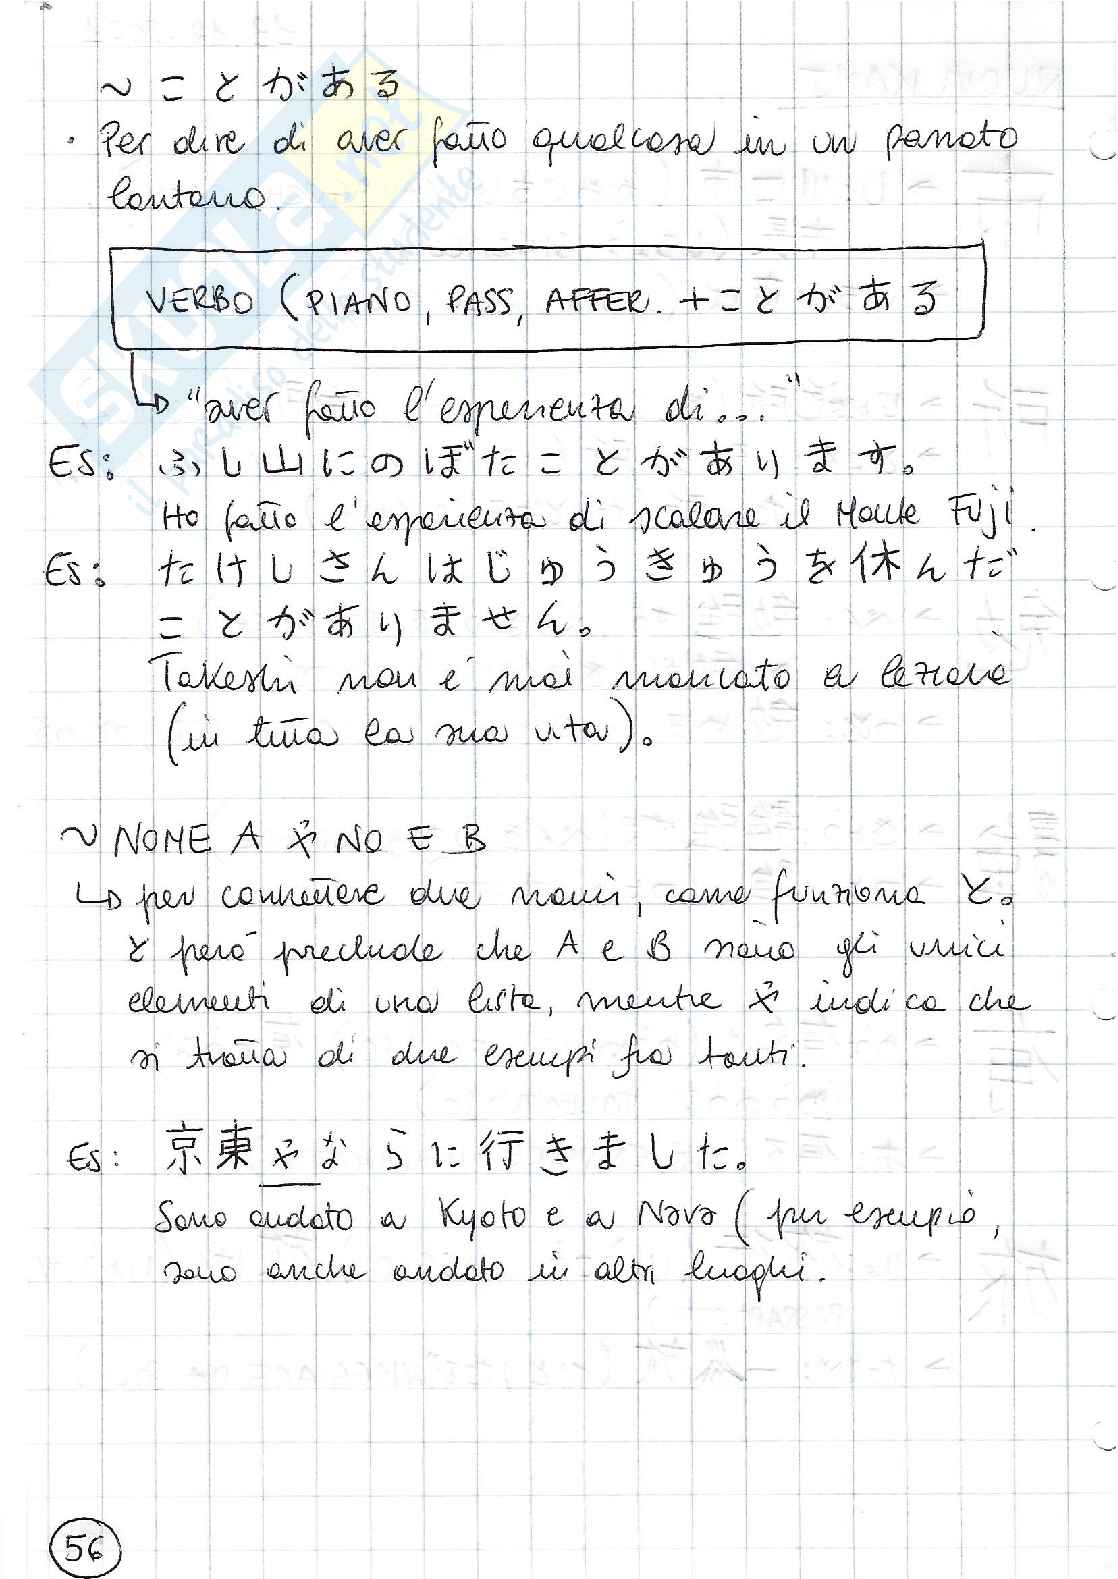 ~ことがある
· Per dire di aver fatto qualcosa in un passato
lontano.
VERBO (PIANO, PASS, AFFER. +ことがある
↳ "aver fatto l'esperienza di..."
ES: ふじ山にのぼたことがあります。
Ho fatto l'esperienza di scalare il Monte Fuji.
ES: たけしさんはじゅうきゅうを休んだ
ことがありません。
Takeshi non è mai mancato a lezione
(in tutta la sua vita).
~ NOME A や NO E B
↳ per connettere due nomi, come funziona と.
と però preclude che A e B siano gli unici
elementi di una lista, mentre や indica che
si tratta di due esempi fra tanti.
ES: 京東やならに行きました。
Sono andato a Kyoto e a Nara (per esempio,
sono anche andato in altri luoghi.
56